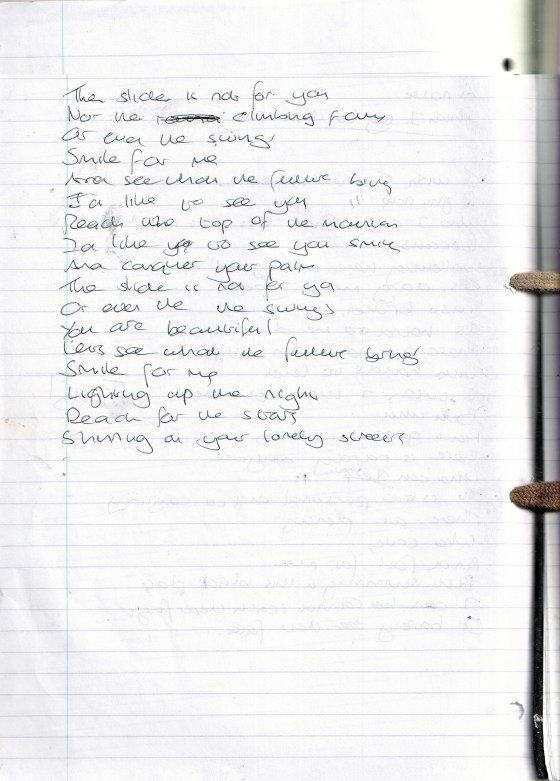 The slide is not for you
Nor the climbing frame
Or even the swings
Smile for me
And see what the future bring
I'd like to see you
Reach the top of the mountain
I'd like to see you smile
And conquer your pain
The slide is not for ya
Or even the the swings
You are beautiful
Let's see what the future brings
Smile for me
Lighting up the night
Reach for the stars
Shining on your lonely streets